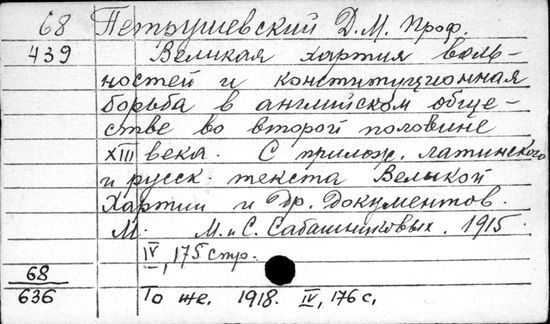 68 Петрушевский Д.М. Проф.
439 Великая хартия воль-
ностей и конституционная
борьба в английском обще-
стве во второй половине
XIII века. С прилож. латинского
и русск. текста Великой
Хартии и др. документов.
М. М. и С. Сабашниковых. 1915.
IV, 175 стр.
68
636 То же. 1918. IV, 176 с,